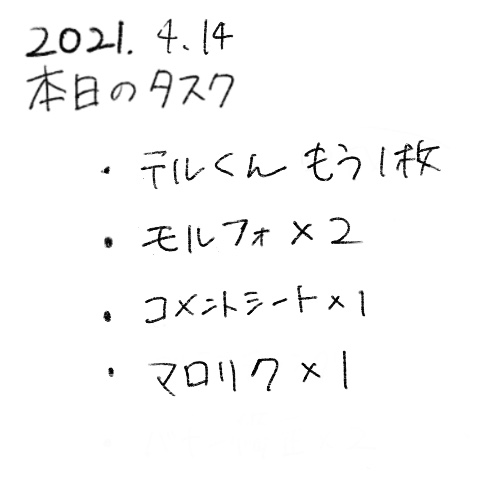 2021. 4.14
本日のタスク
・テルくん もう1枚
・モルフォ×2
・コメントシート×1
・マロリク×1